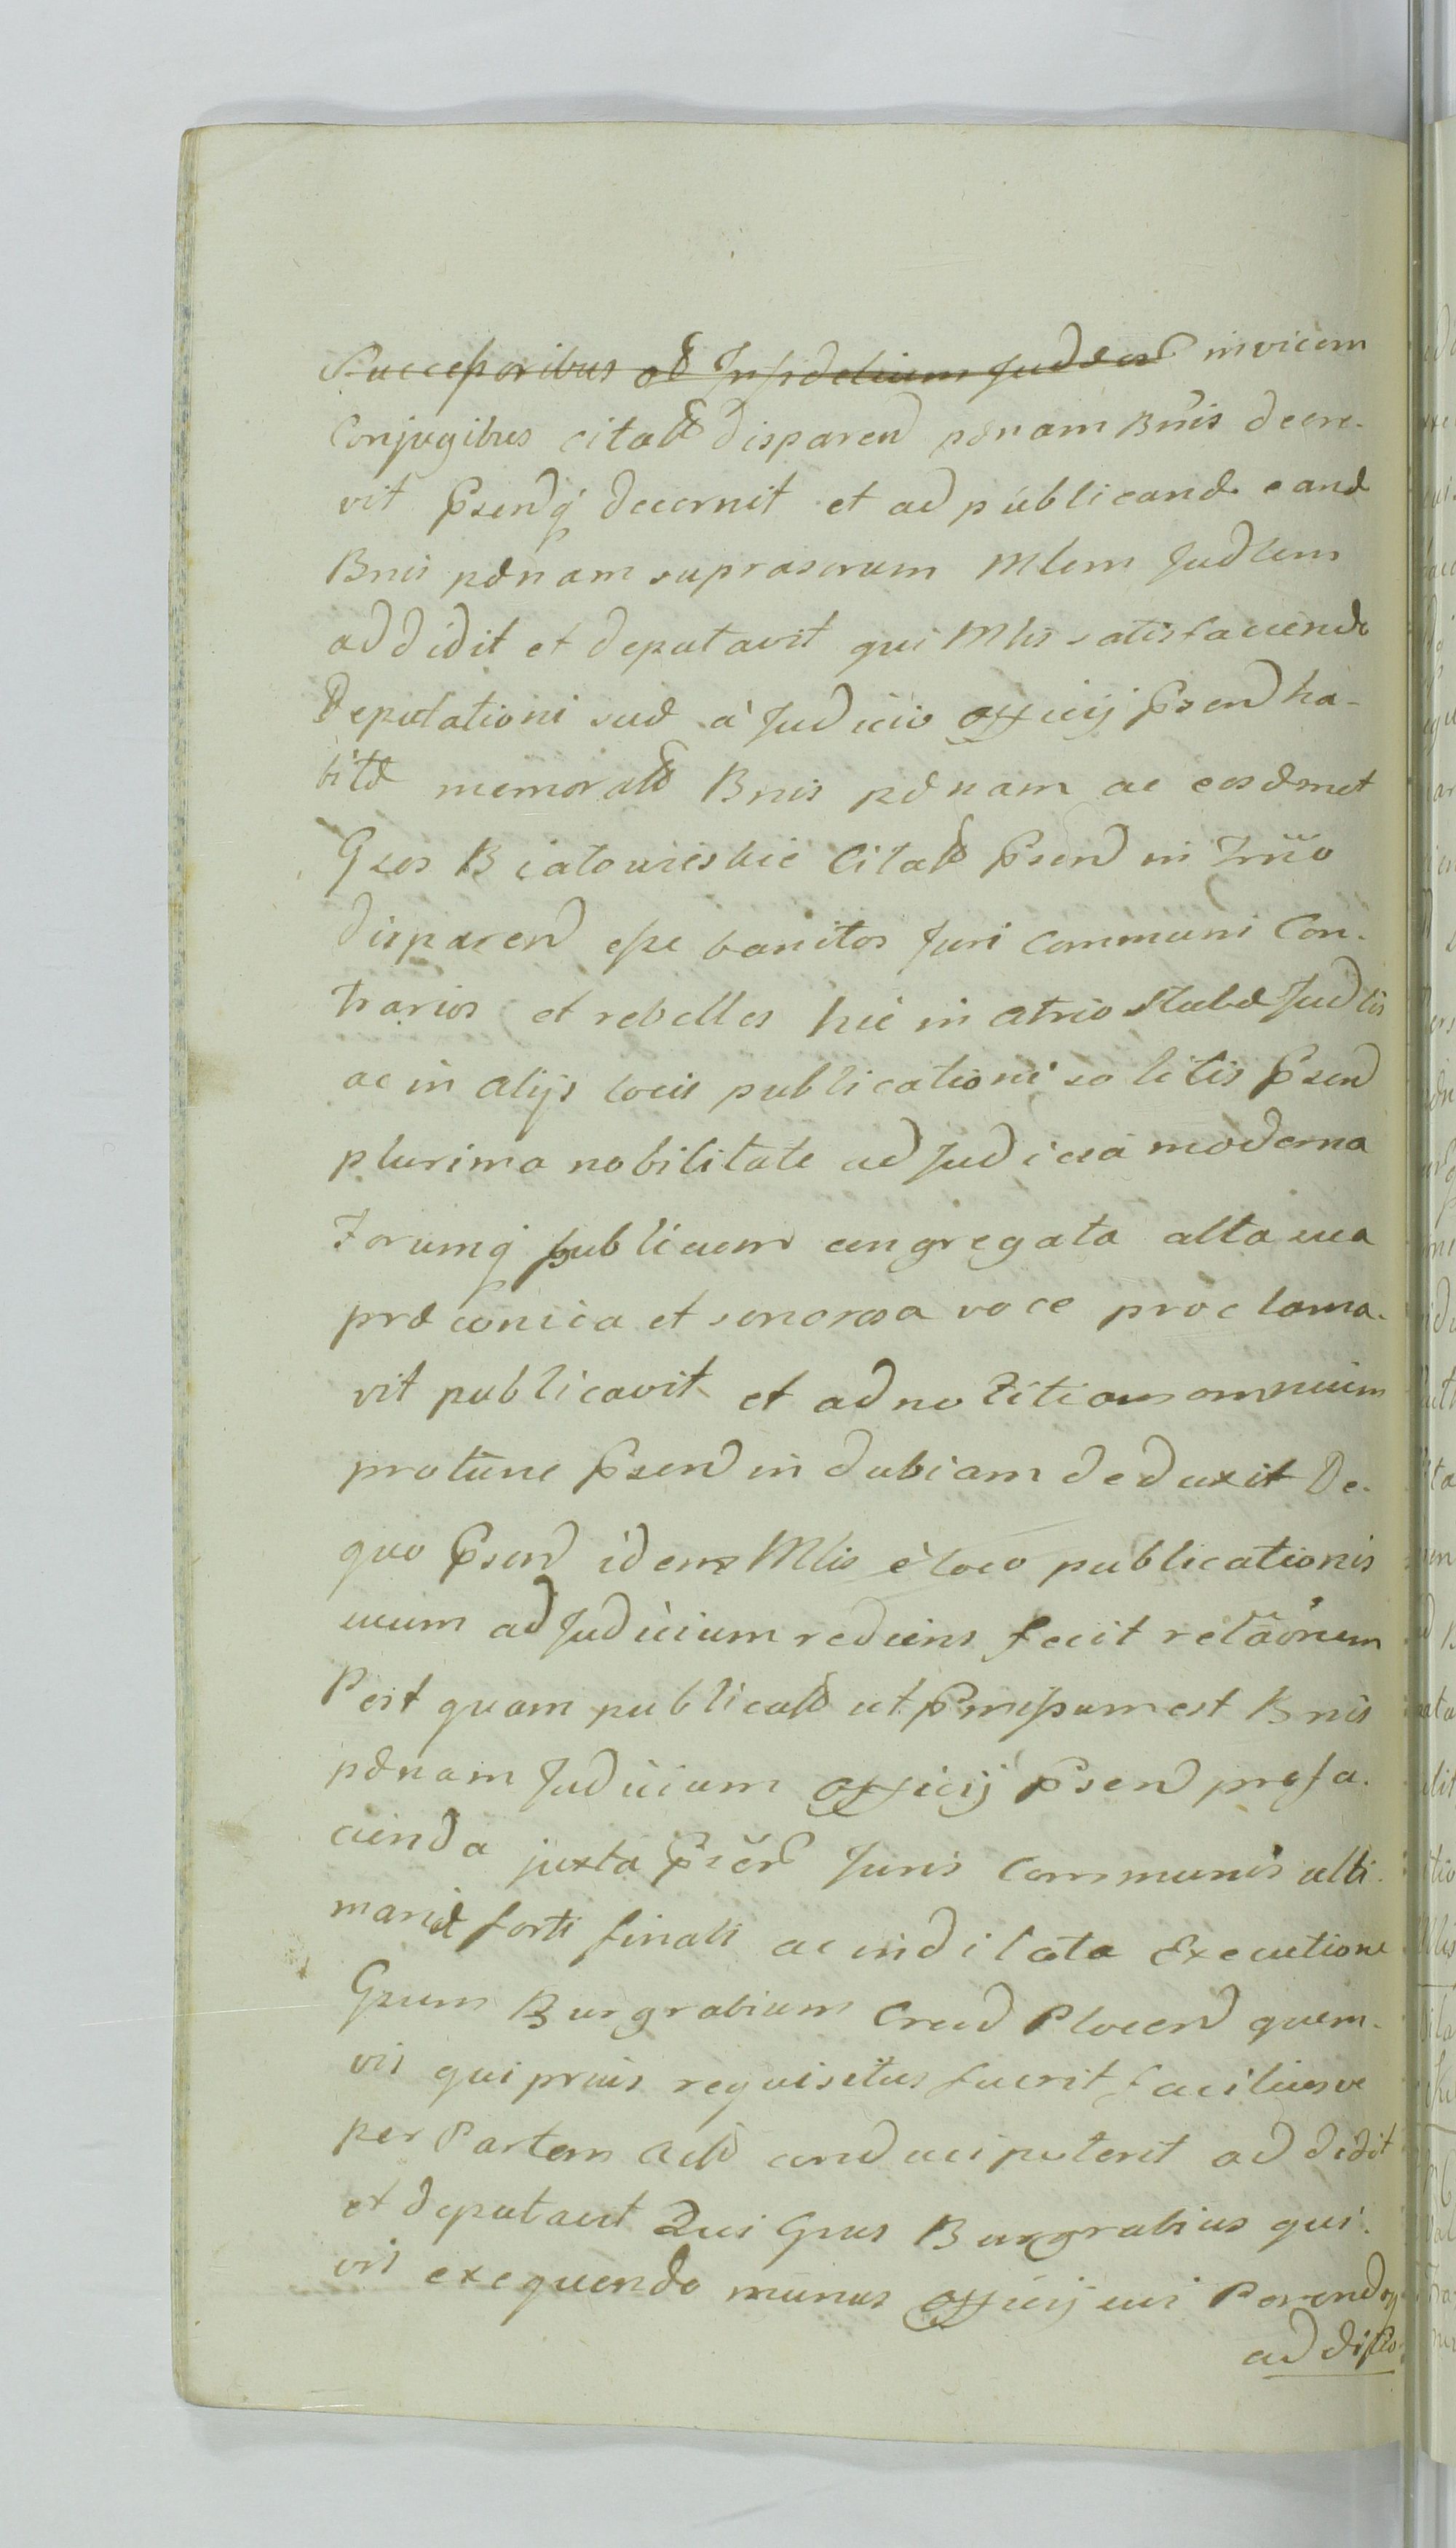 Successoribus ad Infidelium Judaeor invicem
Conjugibus citatt disparen paenam Bnis decre-
vit Psenq decernit et ad publicand eand
Bnis paenam suprascrum Mlem Judlem
addidit et deputavit qui Mlis satisfaciendo
Deputationi suae à Judicio officij Psen ha-
bitae memoratt Bnis paenam ac eosdmet
Gsos Białowieskie Citatt Psen in Trno
disparen esse banitos Juri Communi Con-
trarios et rebelles hic in atrio Stubae Judlis
ac in alijs locis publicationi solitis Psen
plurima nobilitate ad Judicia moderna
Forumq publicum congregata alta sua
praeconica et sonorosa voce proclama-
vit publicavit et ad notitiam omnium
protunc Psen indubiam deduxit De-
quo Psen idem Mlis è loco publicationis
cum ad Judicium rediens fecit relaonem
Post quam publicatt ut Pmissum est Bnis
paenam Judicium officij Psen pro fa-
cienda juxta Pscr Juris Communis ulti-
mariae forti finali ac indilata Executione
Gsum Burgrabium Crad Plocen quem-
vis qui prius requisitus fuerit faciliusve
per Partem Actt conduci poterit addidit
et deputavit Qui Gsus Burgrabius qui-
vis exequendo munus officij sui Parendoq
ad disto-